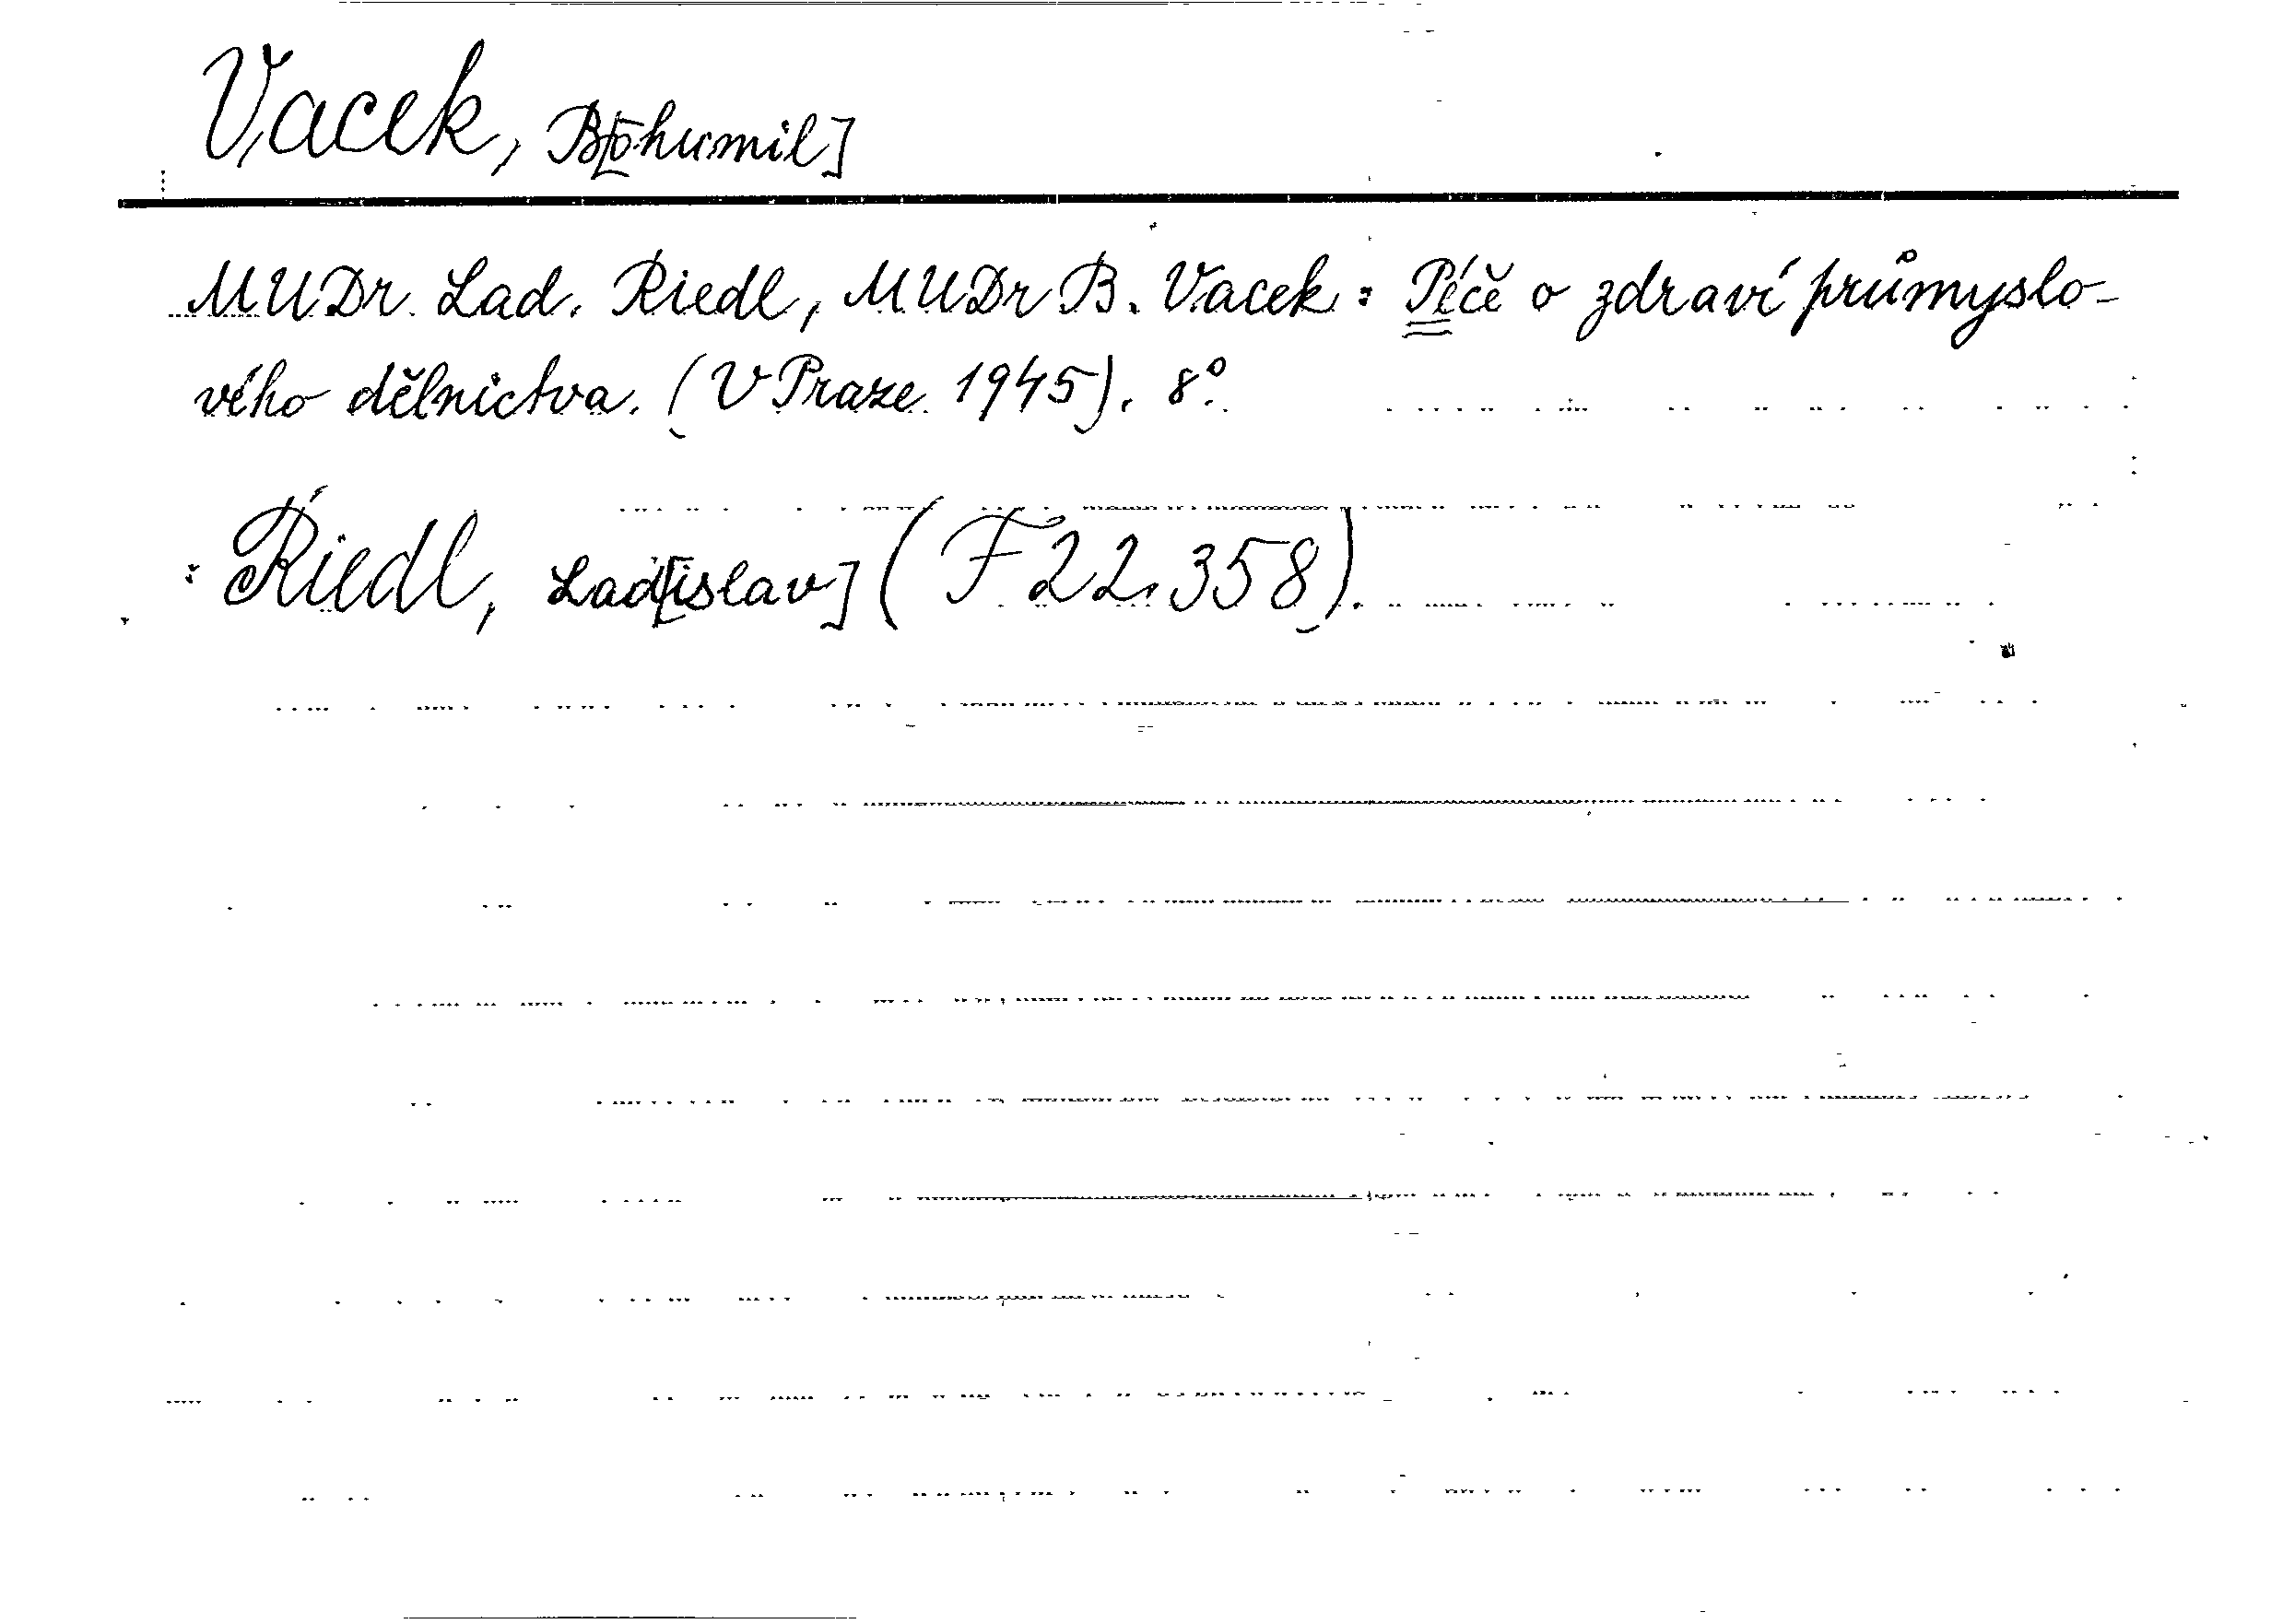 Vacek, B[ohumil]
MUDr. Lad. Riedl, MUDr B. Vacek: Péče o zdraví průmyslo-
vého dělnictva. (V Praze 1945). 8°.
: Riedl, Lad[islav] (F 22.358).